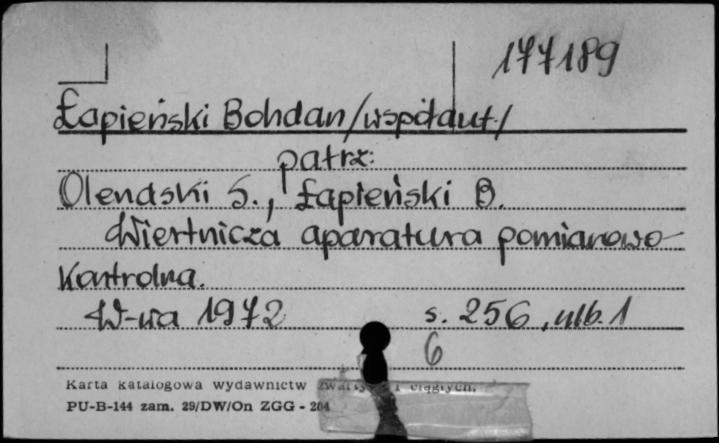 177189
Łapieński Bohdan /współaut./
patrz:
Olendski S., Łapieński B.
Wiertnicza aparatura pomiarowo-
kontrolna.
W-wa 1972 s. 256, nlb. 1
6
Karta katalogowa wydawnictw zwartych i ciągłych.
PU-B-144 zam. 29/DW/On ZGG - 264